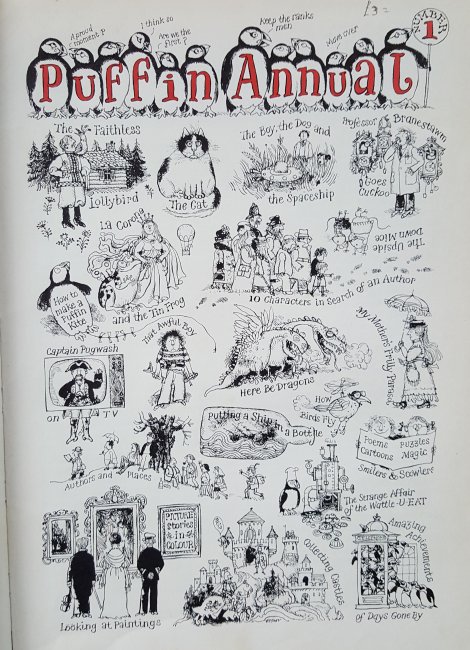 £3=
A proud moment?
I think so
Are we the first?
Keep the ranks men
Move over
NUMBER 1
Puffin Annual
The Faithless Lollybird
The Cat
The Boy, the Dog and the Spaceship
Professor Branestawm Goes Cuckoo
La Corona and the Tin Frog
The Upside Down Mice
10 Characters in Search of an Author
How to make a Puffin Kite
That Awful Boy
Here Be Dragons
My Mother's Frilly Parasol
Captain Pugwash on TV
Putting a Ship in a Bottle
How Birds Fly
Poems Puzzles
Cartoons Magic
Smilers & Scowlers
Authors and Places
The Strange Affair
of the Wattle-U-EAT
PICTURE
Stories
& in
COLOUR
Looking at Paintings
Collecting Castles
Amazing Achievements
of Days Gone By